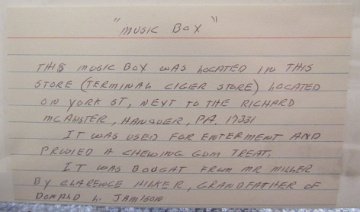 "MUSIC BOX"
THIS MUSIC BOX WAS LOCATED IN THIS
STORE (TERMINAL CIGER STORE) LOCATED
ON YORK ST, NEXT TO THE RICHARD
MCALISTER, HANOVER, PA. 17331
IT WAS USED FOR ENTERMENT AND
PROVIED A CHEWING GUM TREAT.
IT WAS BOUGHT FROM MR MILLER
BY CLARENCE HIKER, GRANDFATHER OF
DONALD L. JAMISON